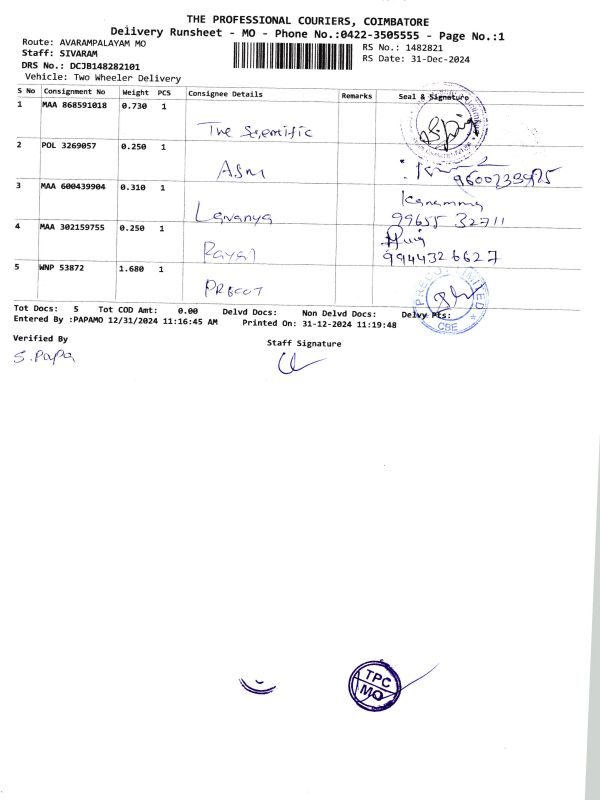 THE PROFESSIONAL COURIERS, COIMBATORE
Delivery Runsheet - MO - Phone No.:0422-3505555 - Page No.:1
Route: AVARAMPALAYAM MO
RS No.: 1482821
Staff: SIVARAM
RS Date: 31-Dec-2024
DRS No.: DCJB148282101
Vehicle: Two Wheeler Delivery
S No Consignment No Weight PCS Consignee Details Remarks Seal & Signature
1 MAA 868591018 0.730 1 The Scientific
2 POL 3269057 0.250 1 ASM
3 MAA 600439904 0.310 1 Lavanya 99655 32711
4 MAA 302159755 0.250 1 Rayal 9944326627
5 WNP 53872 1.680 1 PRECOT PRECOT LIMITED CBE
Tot Docs: 5 Tot COD Amt: 0.00 Delvd Docs: Non Delvd Docs: Delvy Pts:
Entered By :PAPAMO 12/31/2024 11:16:45 AM Printed On: 31-12-2024 11:19:48
Verified By
Staff Signature
S. Papa
TPC
MO